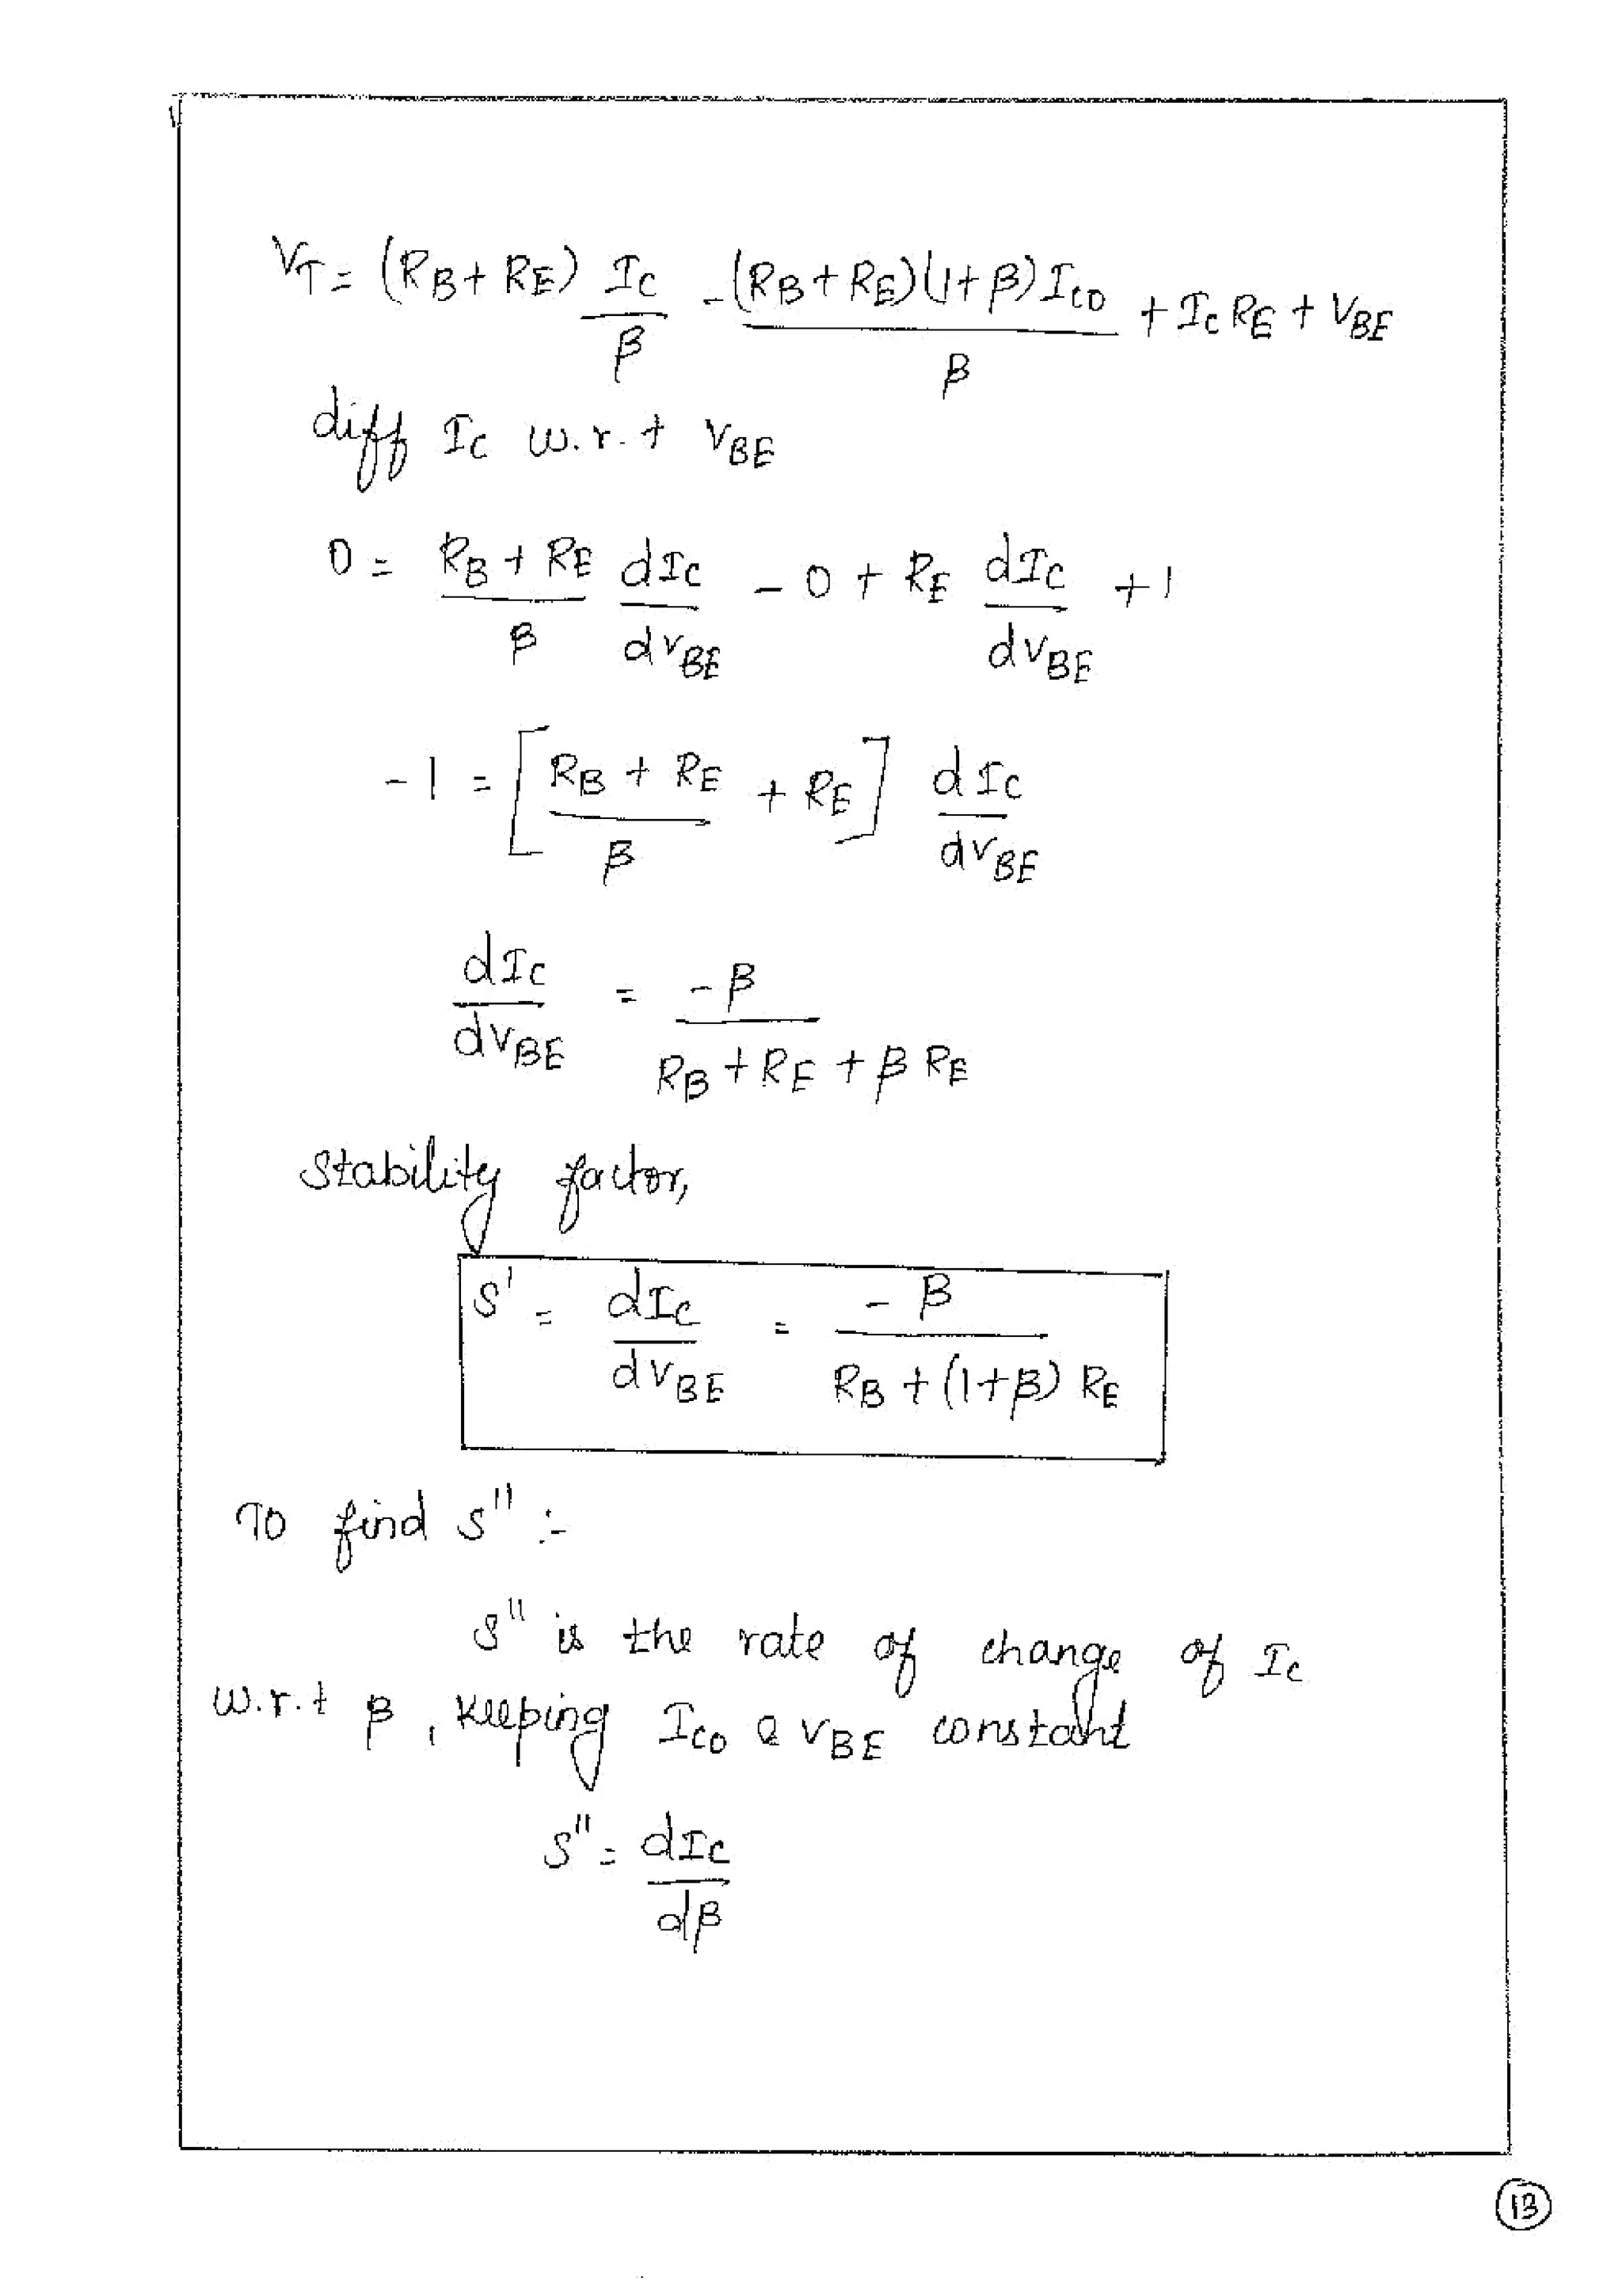 V_T = (R_B + R_E) I_C/β - (R_B + R_E)(1+β) I_CO/β + I_C R_E + V_BE
diff I_C w.r.t V_BE
0 = (R_B + R_E)/β dI_C/dV_BE - 0 + R_E dI_C/dV_BE + 1
-1 = [(R_B + R_E)/β + R_E] dI_C/dV_BE
dI_C/dV_BE = -β/(R_B + R_E + β R_E)
Stability factor,
S' = dI_C/dV_BE = -β/(R_B + (1+β) R_E)
To find S'' :-
S'' is the rate of change of I_C
w.r.t β, keeping I_CO & V_BE constant
S'' = dI_C/dβ
13